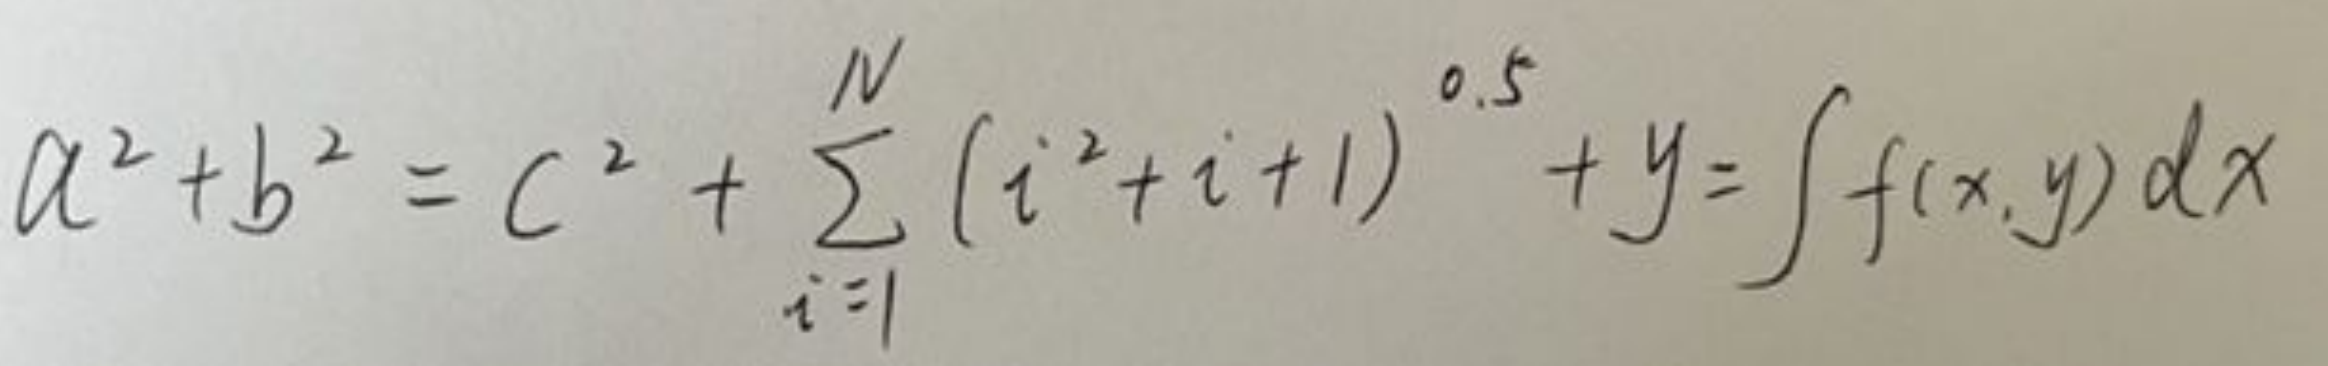 a² + b² = c² + \sum_{i=1}^{N} (i² + i + 1)^{0.5} + y = ∫ f(x, y) dx